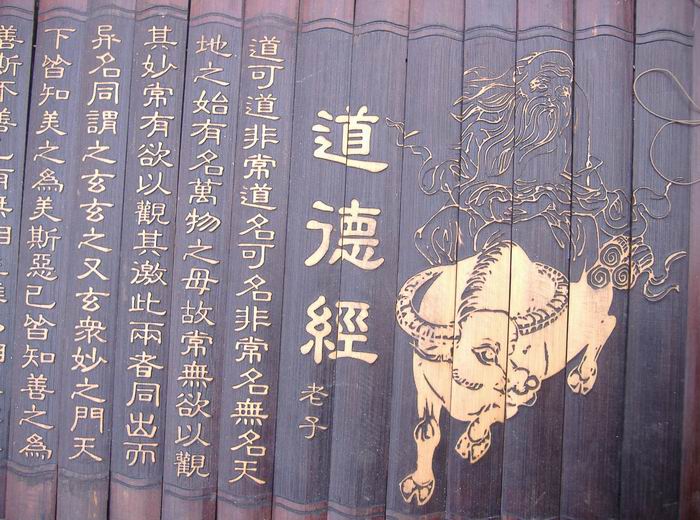 道德經
老子
道可道非常道名可名非常名無名天
地之始有名萬物之母故常無欲以觀
其妙常有欲以觀其邀此兩者同出而
异名同謂之玄玄之又玄衆妙之門天
下皆知美之為美斯惡已皆知善之為
善斯不善已有無相